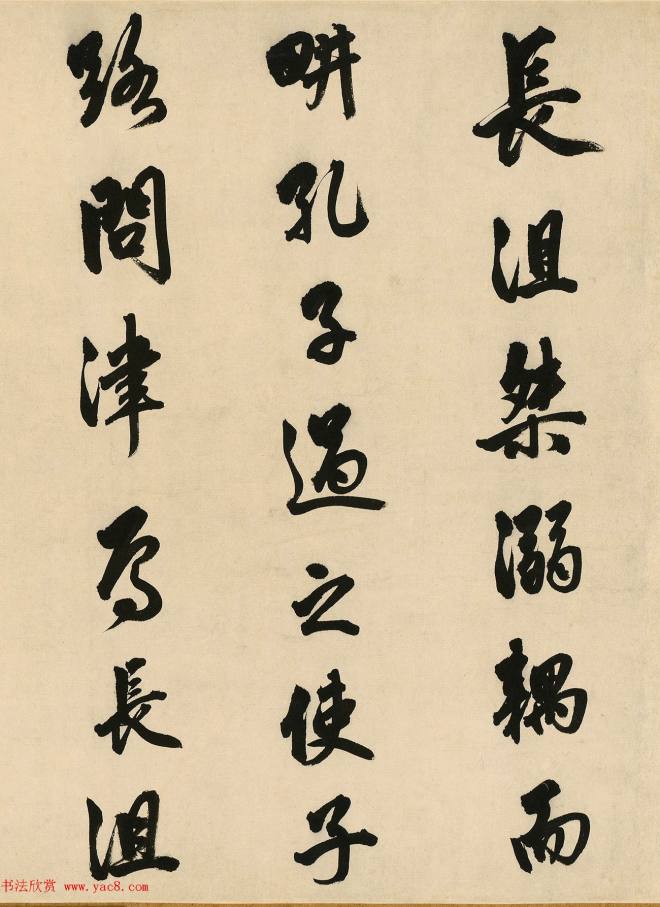 長沮桀溺耦而
畊孔子過之使子
路問津焉長沮
书法欣赏 www.yac8.com